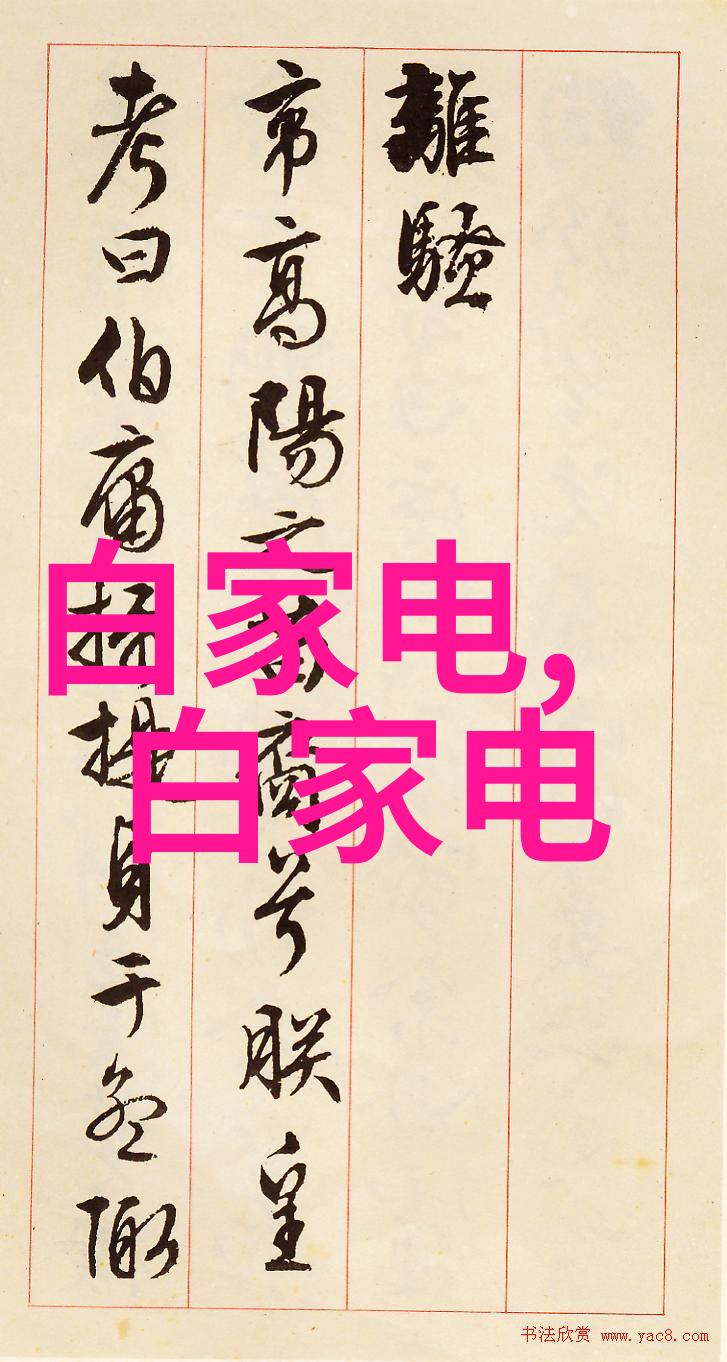 離騷
帝高陽之苗裔兮朕皇
考曰伯庸攝提貞于孟陬
白家电,
白家电
书法欣赏 www.yac8.com